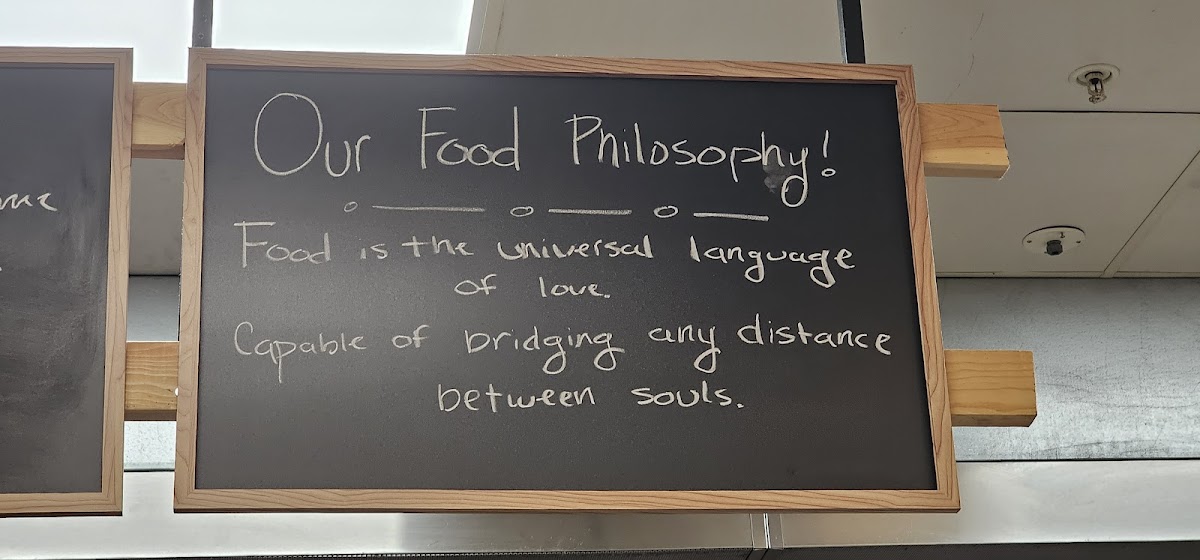 Our Food Philosophy!
Food is the universal language
of love.
Capable of bridging any distance
between souls.